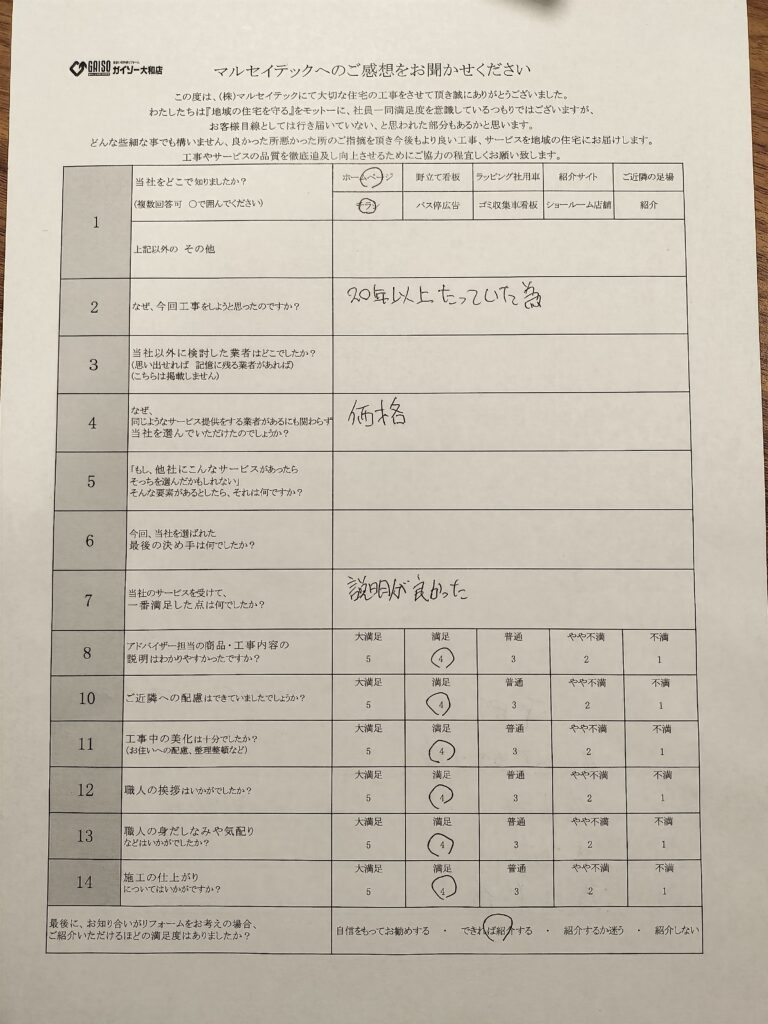 GAISO
ガイソー大和店
マルセイテックへのご感想をお聞かせください
この度は、(株)マルセイテックにて大切な住宅の工事をさせて頂き誠にありがとうございました。
わたしたちは『地域の住宅を守る』をモットーに、社員一同満足度を意識しているつもりではございますが、
お客様目線としては行き届いていない、と思われた部分もあるかと思います。
どんな些細な事でも構いません、良かった所悪かった所のご指摘を頂き今後もより良い工事、サービスを地域の住宅にお届けします。
工事やサービスの品質を徹底追及し向上させるためにご協力の程宜しくお願い致します。
1
当社をどこで知りましたか?
(複数回答可 ○で囲んでください)
ホームページ 野立て看板 ラッピング社用車 紹介サイト ご近隣の足場
チラシ バス停広告 ゴミ収集車看板 ショールーム店舗 紹介
上記以外の その他
2
なぜ、今回工事をしようと思ったのですか?
20年以上たっていた為
3
当社以外に検討した業者はどこでしたか?
(思い出せれば 記憶に残る業者があれば)
(こちらは掲載しません)
4
なぜ、
同じようなサービス提供をする業者があるにも関わらず
当社を選んでいただけたのでしょうか?
価格
5
「もし、他社にこんなサービスがあったら
そっちを選んだかもしれない」
そんな要素があるとしたら、それは何ですか?
6
今回、当社を選ばれた
最後の決め手は何でしたか?
7
当社のサービスを受けて、
一番満足した点は何でしたか?
説明が良かった
8
アドバイザー担当の商品・工事内容の
説明はわかりやすかったですか?
大満足 満足 普通 やや不満 不満
5 4 3 2 1
10
ご近隣への配慮はできていましたでしょうか?
大満足 満足 普通 やや不満 不満
5 4 3 2 1
11
工事中の美化は十分でしたか?
(お住いへの配慮、整理整頓など)
大満足 満足 普通 やや不満 不満
5 4 3 2 1
12
職人の挨拶はいかがでしたか?
大満足 満足 普通 やや不満 不満
5 4 3 2 1
13
職人の身だしなみや気配り
などはいかがでしたか?
大満足 満足 普通 やや不満 不満
5 4 3 2 1
14
施工の仕上がり
についてはいかがですか?
大満足 満足 普通 やや不満 不満
5 4 3 2 1
最後に、お知り合いがリフォームをお考えの場合、
ご紹介いただけるほどの満足度はありましたか?
自信をもってお勧めする ・ できれば紹介する ・ 紹介するか迷う ・ 紹介しない